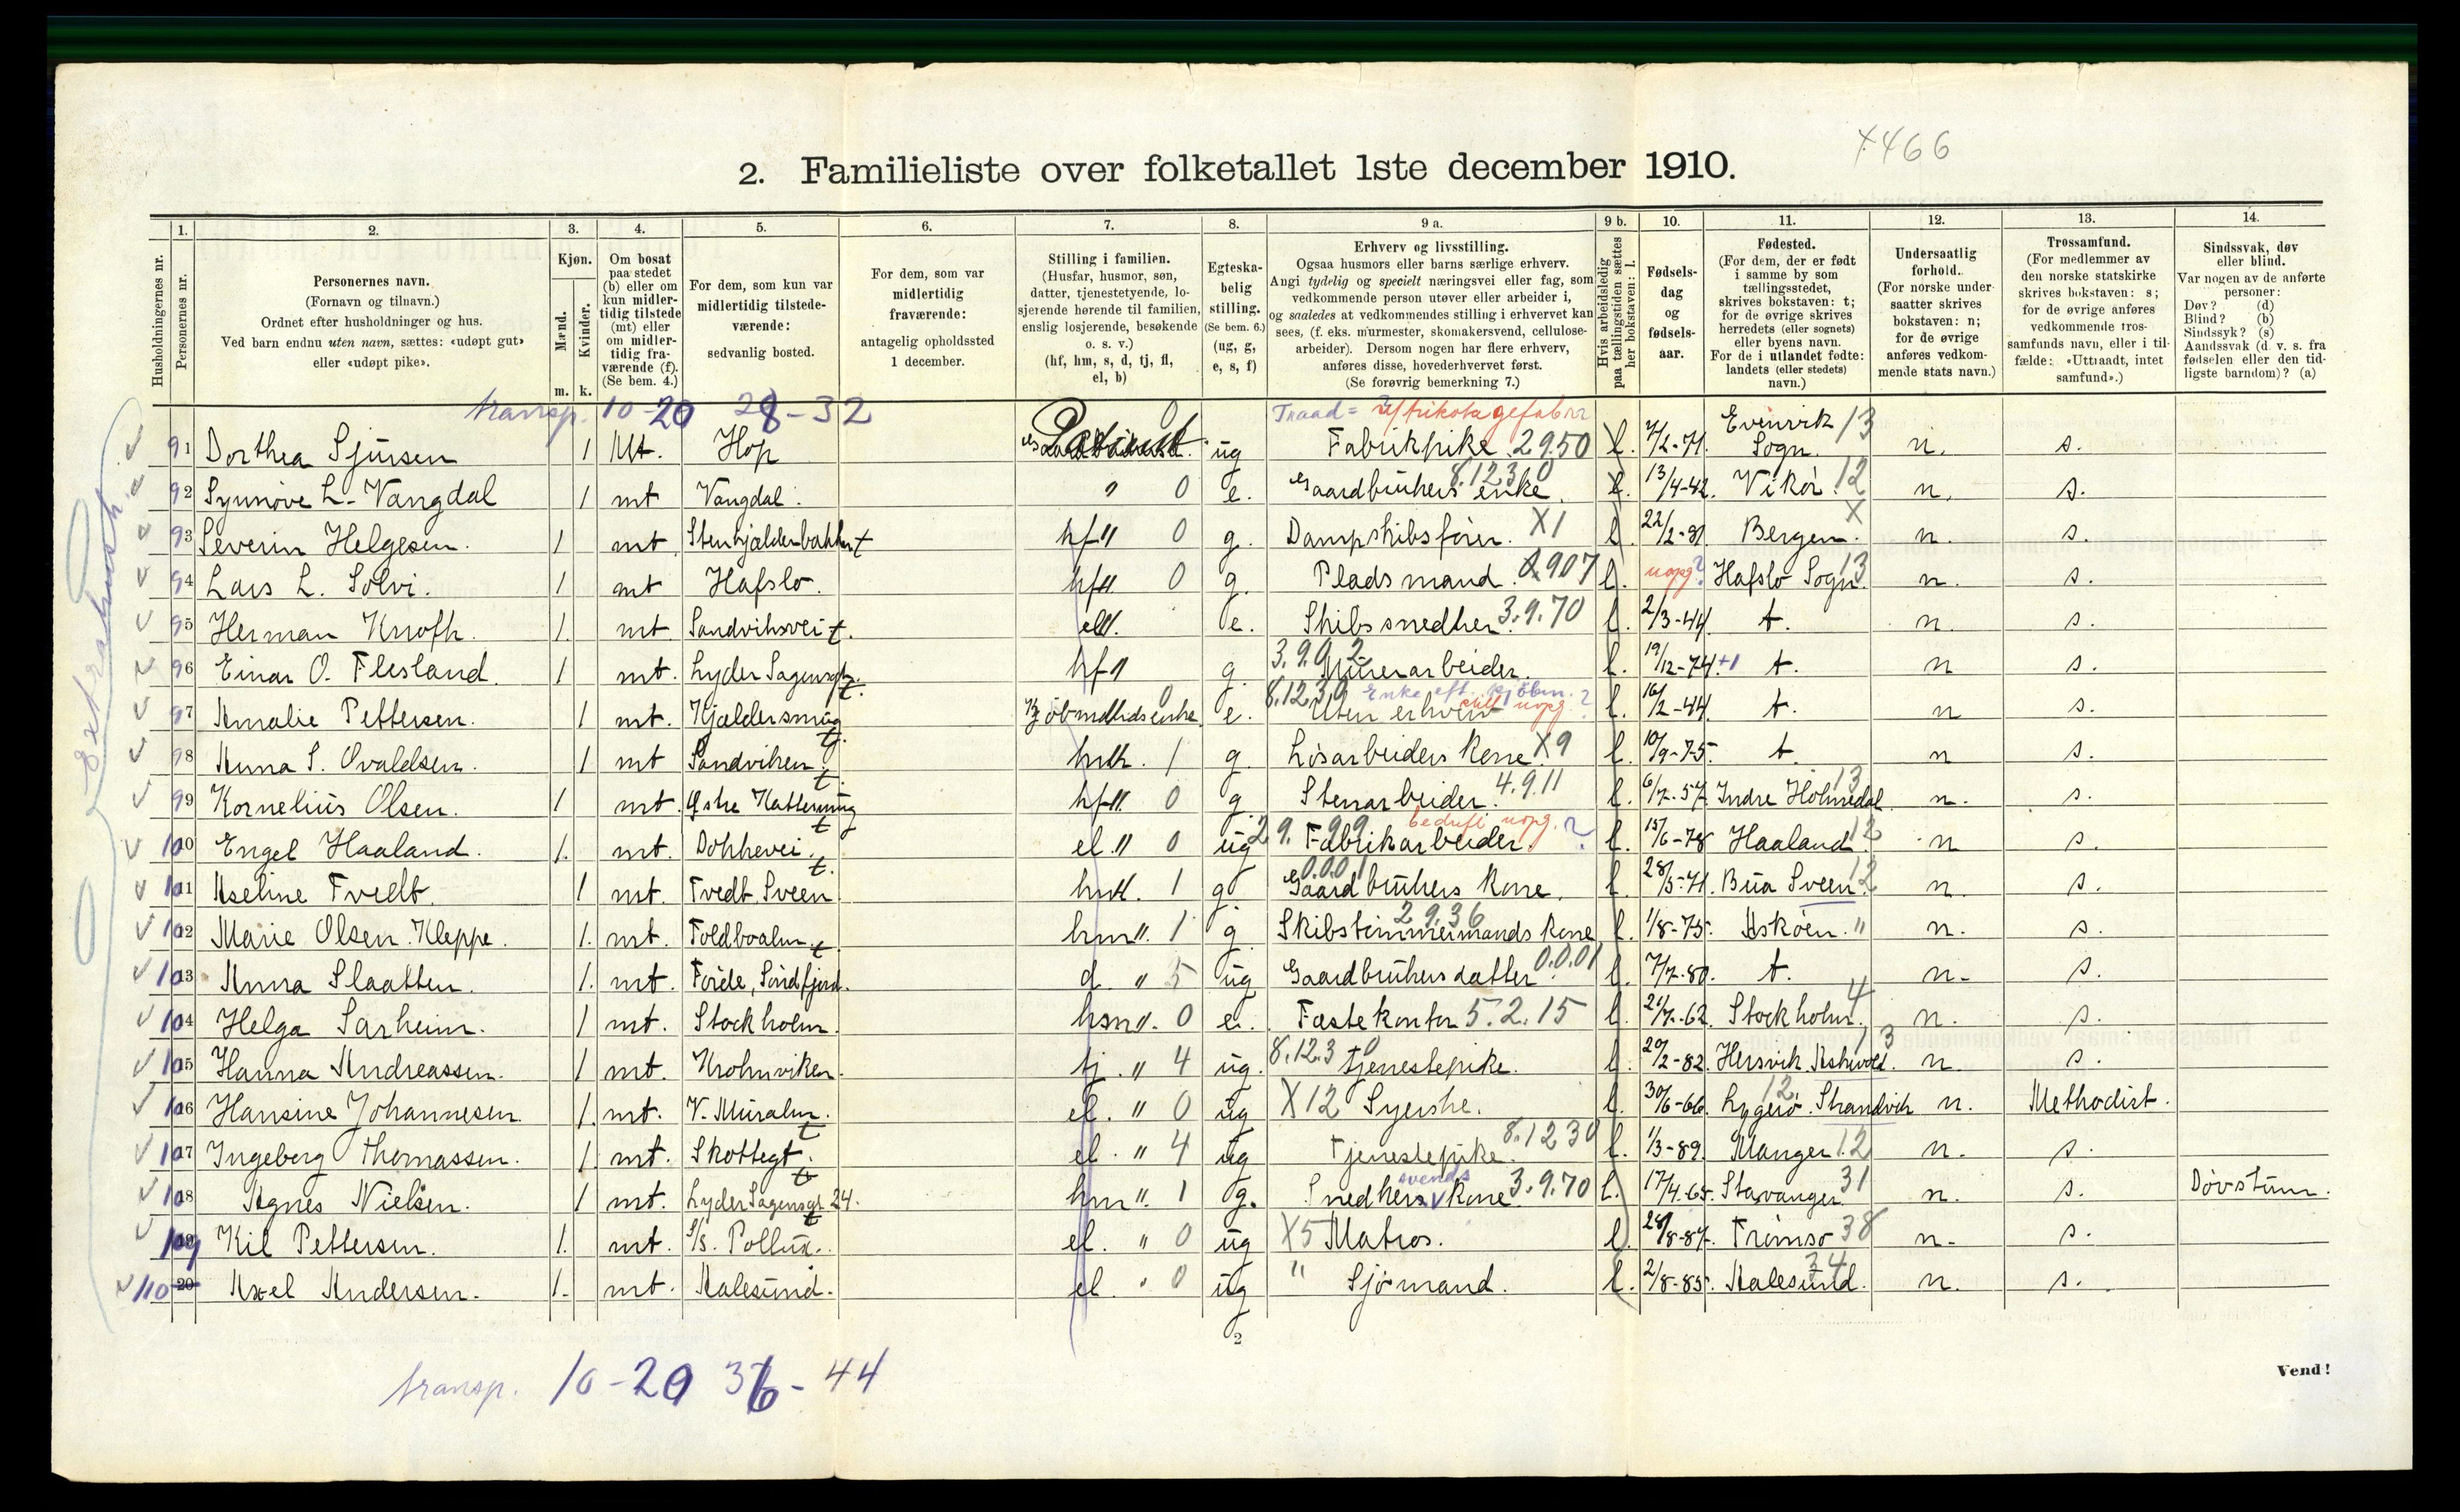 7466
2. Familieliste over folketallet 1ste december 1910.
1. 2. 3. 4. 5. 6. 7. 8. 9 a. 9 b. 10. 11. 12. 13. 14.
Husholdningernes nr.
Personernes nr.
Personernes navn.
(Fornavn og tilnavn.)
Ordnet efter husholdninger og hus.
Ved barn endnu uten navn, sættes: «udøpt gut»
eller «udøpt pike».
Kjøn.
Mænd.
Kvinder.
m. k.
Om bosat
paa stedet
(b) eller om
kun midler-
tidig tilstede
(mt) eller
om midler-
tidig fra-
værende (f).
(Se bem. 4.)
For dem, som kun var
midlertidig tilstede-
værende:
sedvanlig bosted.
For dem, som var
midlertidig
fraværende:
antagelig opholdssted
1 december.
Stilling i familien.
(Husfar, husmor, søn,
datter, tjenestetyende, lo-
sjerende hørende til familien,
enslig losjerende, besøkende
o. s. v.)
(hf, hm, s, d, tj, fl,
el, b)
Egteska-
belig
stilling.
(Se bem. 6.)
(ug, g,
e, s, f)
Erhverv og livsstilling.
Ogsaa husmors eller barns særlige erhverv.
Angi tydelig og specielt næringsvei eller fag, som
vedkommende person utøver eller arbeider i,
og saaledes at vedkommendes stilling i erhvervet kan
sees, (f. eks. murmester, skomakersvend, cellulose-
arbeider). Dersom nogen har flere erhverv,
anføres disse, hovederhvervet først.
(Se forøvrig bemerkning 7.)
Hvis arbeidsledig
paa tællingstiden sættes
her bokstaven: l.
Fødsels-
dag
og
fødsels-
aar.
Fødested.
(For dem, der er født
i samme by som
tællingsstedet,
skrives bokstaven: t;
for de øvrige skrives
herredets (eller sognets)
eller byens navn.
For de i utlandet fødte:
landets (eller stedets)
navn.)
Undersaatlig
forhold.
(For norske under-
saatter skrives
bokstaven: n;
for de øvrige
anføres vedkom-
mende stats navn.)
Trossamfund.
(For medlemmer av
den norske statskirke
skrives bokstaven: s;
for de øvrige anføres
vedkommende tros-
samfunds navn, eller i til-
fælde: «Uttraadt, intet
samfund».)
Sindssvak, døv
eller blind.
Var nogen av de anførte
personer:
Døv? (d)
Blind? (b)
Sindssyk? (s)
Aandssvak (d. v. s. fra
fødselen eller den tid-
ligste barndom)? (a)
transp. 10-20 28-32
Traad= trikotagefabr
91 Dorthea Sjursen 1 Mt. Hop Patient 0 ug Fabrikpike 2950 l. 7/2-71 Evenvik Sogn 13 n. s.
92 Synnøve L. Vangdal 1 mt Vangdal " 0 e. Gaardbrukers enke 8.12.3 0 l. 13/4-42. Vikør 12 n. s.
93 Severin Helgesen 1 mt. Stenkjælderbakken t hf " 0 g. Dampskibsfører. X1 l. 22/2-81 Bergen X n. s.
94 Lars L. Solvi. 1 mt Hafslo. hf " 0 g. Pladsmand 0.907 l. uopg? Hafslo Sogn 13 n. s.
95 Herman Kroft. 1. mt. Sandviksvei t. el ". e. Skibssnedker 3.9.70 l. 2/3-44. t. n. s.
96 Einar O. Flesland. 1 mt. Lyder Sagensgt. t. hf " g 3.9.0 2 Murerarbeider. l. 19/12-74. +1 t. n s.
97 Amalie Pettersen. 1 mt. Kjældersmug t. Kjøbmdmds enke 0 e. 8.12.30 Enke eft. kjøbm. ? Uten erhverv still uopg l. 16/2-44. t. n s.
98 Anna S. Ovaldsen. 1 mt Sandviken t. hm . 1 g. Løsarbeiders kone X9 l. 10/9-75. t. n s.
99 Kornelius Olsen. 1 mt. Østre Hattersmug t hf ". 0 g. Stenarbeider. 4.9.11 l. 6/7-57. Indre Holmedal 13 n. s.
100 Engel Haaland. 1. mt. Dokkevei. t. el " 0 ug 29.99 Fabrikarbeider. bedrift uopg. ? l. 15/6-78 Haaland 12 n s.
101 Aseline Tvedt. 1 mt. Tvedt. Sveen hm . 1 g Gaardbrukers kone. 0.001 l. 28/3-71. Bua Sveen 12 n. s.
102 Marie Olsen Kleppe. 1. mt. Toldboalm. t hm ". 1 g Skibstømmermands kone 29.36 l. 1/8-75. Askøen. " n. s.
103 Anna Slaatten. 1. mt. Førde, Søndfjord. d. " 5 ug Gaardbrukers datter 0.0.01 l. 7/7-80. t. n. s.
104 Helga Sarheim. 1 mt. Stockholm. hm ". 0 e. Fæstekontor 5.2.15 l. 21/7-62. Stockholm 4 n. s.
105 Hanna Andreassen. 1 mt. Krohnviken. tj. " 4 ug. 8.12.3 0 tjenestepike. l. 20/2-82. Hersvik Askvold. 13 n. s.
106 Hansine Johannesen. 1. mt. V. Muralm. t el. " 0 ug X12 Syerske. l. 30/6-66. Lygerø. Strandvik 12 n. Methodist.
107 Ingeborg Thomassen. 1. mt. Skottegt. t el. " 4 ug Tjenestepike. 8.12 30 l. 1/3-89. Manger 12 n. s.
108 Agnes Nielsen. 1 mt. Lyder Sagensgt. 24. t hm ". 1 g. Snedkersvends kone 3.9.70 l. 17/4-65. Stavanger 31 n. s. Døvstum.
109 Kil Pettersen. 1. mt. S/s. Pollux. el. " 0 ug X5 Matros. l. 28/8-87. Tromsø 38 n. s.
110 20 Axel Andersen. 1. mt. Aalesund. el. " 0 ug " Sjømand. l. 2/8-85. Aalesund. 34 n. s.
2
Vend!
transp. 10-20 36-44